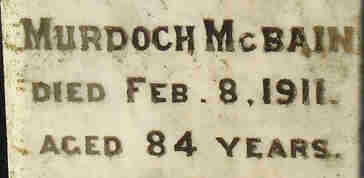 MURDOCH MCBAIN
DIED FEB. 8, 1911.
AGED 84 YEARS.